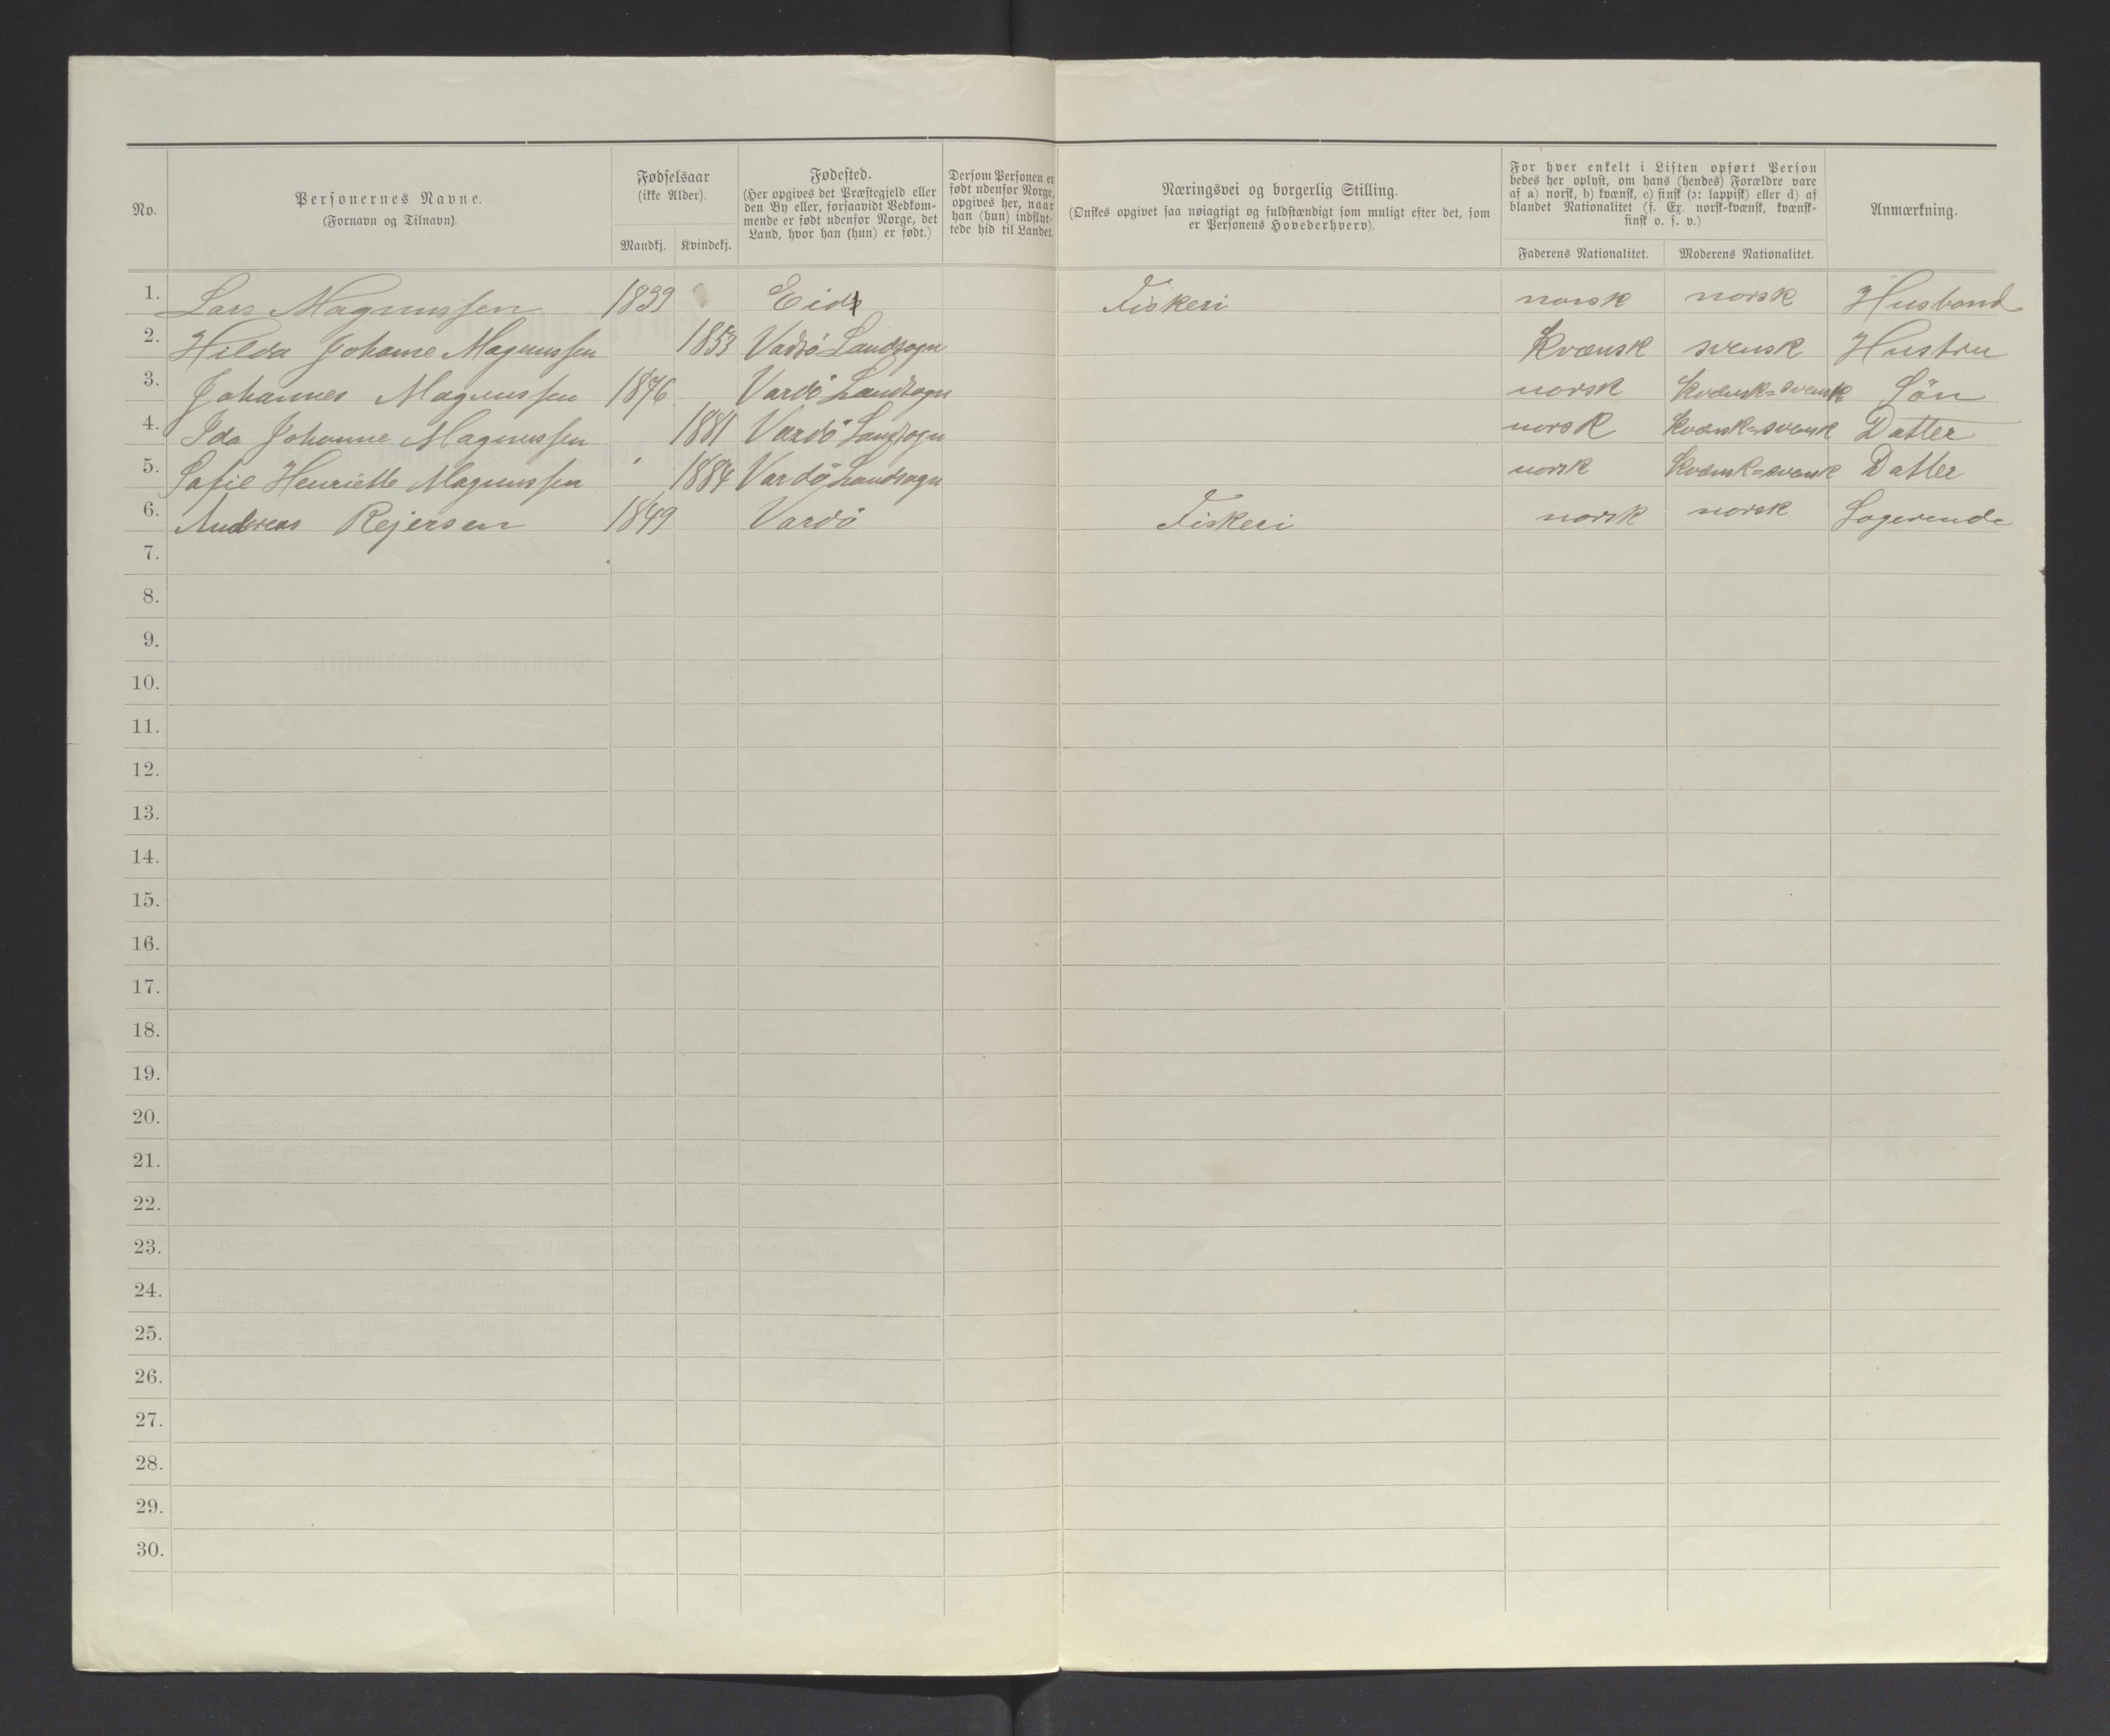 No.
Personernes Navne.
(Fornavn og Tilnavn).
Fødselsaar
(ikke Alder).
Mandkj. Kvindekj.
Fødested.
(Her opgives det Præstegjeld eller
den By eller, forsaavidt Vedkom-
mende er født udenfor Norge, det
Land, hvor han (hun) er født.)
Dersom Personen er
født udenfor Norge,
opgives her, naar
han (hun) indflyt-
tede hid til Landet.
Næringsvei og borgerlig Stilling.
(Ønskes opgivet saa nøiagtigt og fuldstændigt som muligt efter det, som
er Personens Hovederhverv).
For hver enkelt i Listen opført Person
bedes her oplyst, om hans (hendes) Forældre vare
af a) norsk, b) kvænsk, c) finsk (ɔ: lappisk) eller d) af
blandet Nationalitet (f. Ex. norsk-kvænsk, kvænsk-
finsk o. s. v.)
Faderens Nationalitet. Moderens Nationalitet.
Anmærkning.
1. Lars Magnussen 1839 Eid Fiskeri norsk norsk Husbond
2. Hilda Johanne Magnussen 1853 Vadsö Landsogn Kvænsk svensk Hustru
3. Johannes Magnussen 1876 Vardö Landsogn norsk Kvænsk=svensk Sön
4. Ida Johanne Magnussen 1881 Vardö Landsogn norsk Kvænsk=svensk Datter
5. Sofie Henriette Magnussen 1884 Vardö Landsogn norsk Kvænsk=svensk Datter
6. Andreas Rejersen 1849 Vardö Fiskeri norsk norsk Logerende
7.
8.
9.
10.
11.
12.
13.
14.
15.
16.
17.
18.
19.
20.
21.
22.
23.
24.
25.
26.
27.
28.
29.
30.